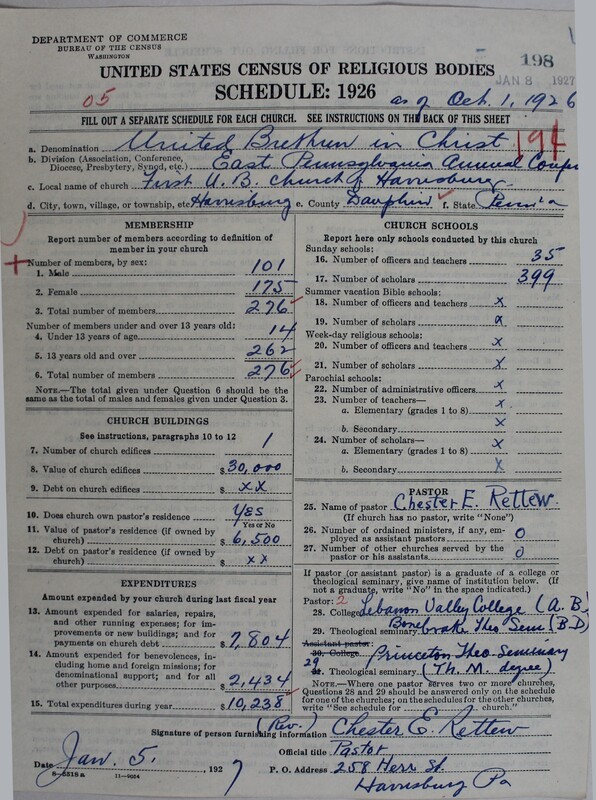 DEPARTMENT OF COMMERCE
BUREAU OF THE CENSUS
WASHINGTON
198
JAN 8 1927
UNITED STATES CENSUS OF RELIGIOUS BODIES
SCHEDULE: 1926
05
as of Oct. 1, 1926
FILL OUT A SEPARATE SCHEDULE FOR EACH CHURCH. SEE INSTRUCTIONS ON THE BACK OF THIS SHEET
a. Denomination United Brethren in Christ
191
b. Division (Association, Conference, Diocese, Presbytery, Synod, etc.) East Pennsylvania Annual
c. Local name of church First U.B. Church of Harrisburg
d. City, town, village, or township, etc. Harrisburg e. County Dauphin f. State Penn'a
MEMBERSHIP
Report number of members according to definition of
member in your church
Number of members, by sex:
1. Male 101
2. Female 175
3. Total number of members 276
Number of members under and over 13 years old:
4. Under 13 years of age 14
5. 13 years old and over 262
6. Total number of members 276
NOTE.—The total given under Question 6 should be
same as the total of males and females given under Question 3.
CHURCH BUILDINGS
See instructions, paragraphs 10 to 12
7. Number of church edifices 1
8. Value of church edifices $ 30,000
9. Debt on church edifices $ xx
10. Does church own pastor's residence yes
Yes or No
11. Value of pastor's residence (if owned by
church) $ 6,500
12. Debt on pastor's residence (if owned by
church) $ xx
EXPENDITURES
Amount expended by your church during last fiscal year
13. Amount expended for salaries, repairs,
and other running expenses; for im-
provements or new buildings; and for
payments on church debt $ 7,804
14. Amount expended for benevolences, in-
cluding home and foreign missions; for
denominational support; and for all
other purposes $ 2,434
15. Total expenditures during year $ 10,238
CHURCH SCHOOLS
Report here only schools conducted by this church
Sunday schools:
16. Number of officers and teachers 35
17. Number of scholars 399
Summer vacation Bible schools:
18. Number of officers and teachers x
19. Number of scholars x
Week-day religious schools:
20. Number of officers and teachers x
21. Number of scholars x
Parochial schools:
22. Number of administrative officers x
23. Number of teachers—
a. Elementary (grades 1 to 8) x
b. Secondary x
24. Number of scholars—
a. Elementary (grades 1 to 8) x
b. Secondary x
PASTOR
25. Name of pastor Chester E. Rettew
(If church has no pastor, write "None")
26. Number of ordained ministers, if any, em-
ployed as assistant pastors 0
27. Number of other churches served by the
pastor or his assistants 0
If pastor (or assistant pastor) is a graduate of a college or
theological seminary, give name of institution below. (If
not a graduate, write "No" in the space indicated.)
Pastor: 2
28. College Lebanon Valley College (A.B)
29. Theological seminary Bonebrake Theo. Sem (B.D)
Assistant pastor:
30. College Princeton Theo. Seminary
29 31. Theological seminary (Th. M. degree)
NOTE.—Where one pastor serves two or more churches,
Questions 28 and 29 should be answered only on the schedule
for one of the churches; on the schedules for the other churches,
write "See schedule for church."
Signature of person furnishing information (Rev.) Chester E. Rettew
Official title Pastor
Date Jan. 5. , 1927
P. O. Address 258 Herr St.
Harrisburg Pa
8-5318a 11-9264